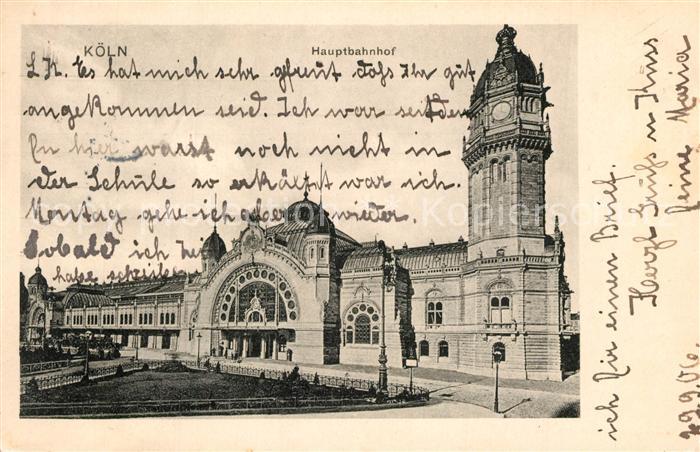 KÖLN
Hauptbahnhof
L. K. Es hat mich sehr gefreut daß Ihr gut
angekommen seid. Ich war seitdem
Du hier warst noch nicht in
der Schule so erkältet war ich.
Montag gehe ich aber wieder.
Sobald ich Zeit
habe schreibe
ich Dir einen Brief.
Herzl Gruß u Kuss
Deine Maria
29.9.06.